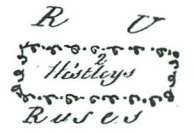 R U
2
Westleys
Ruses